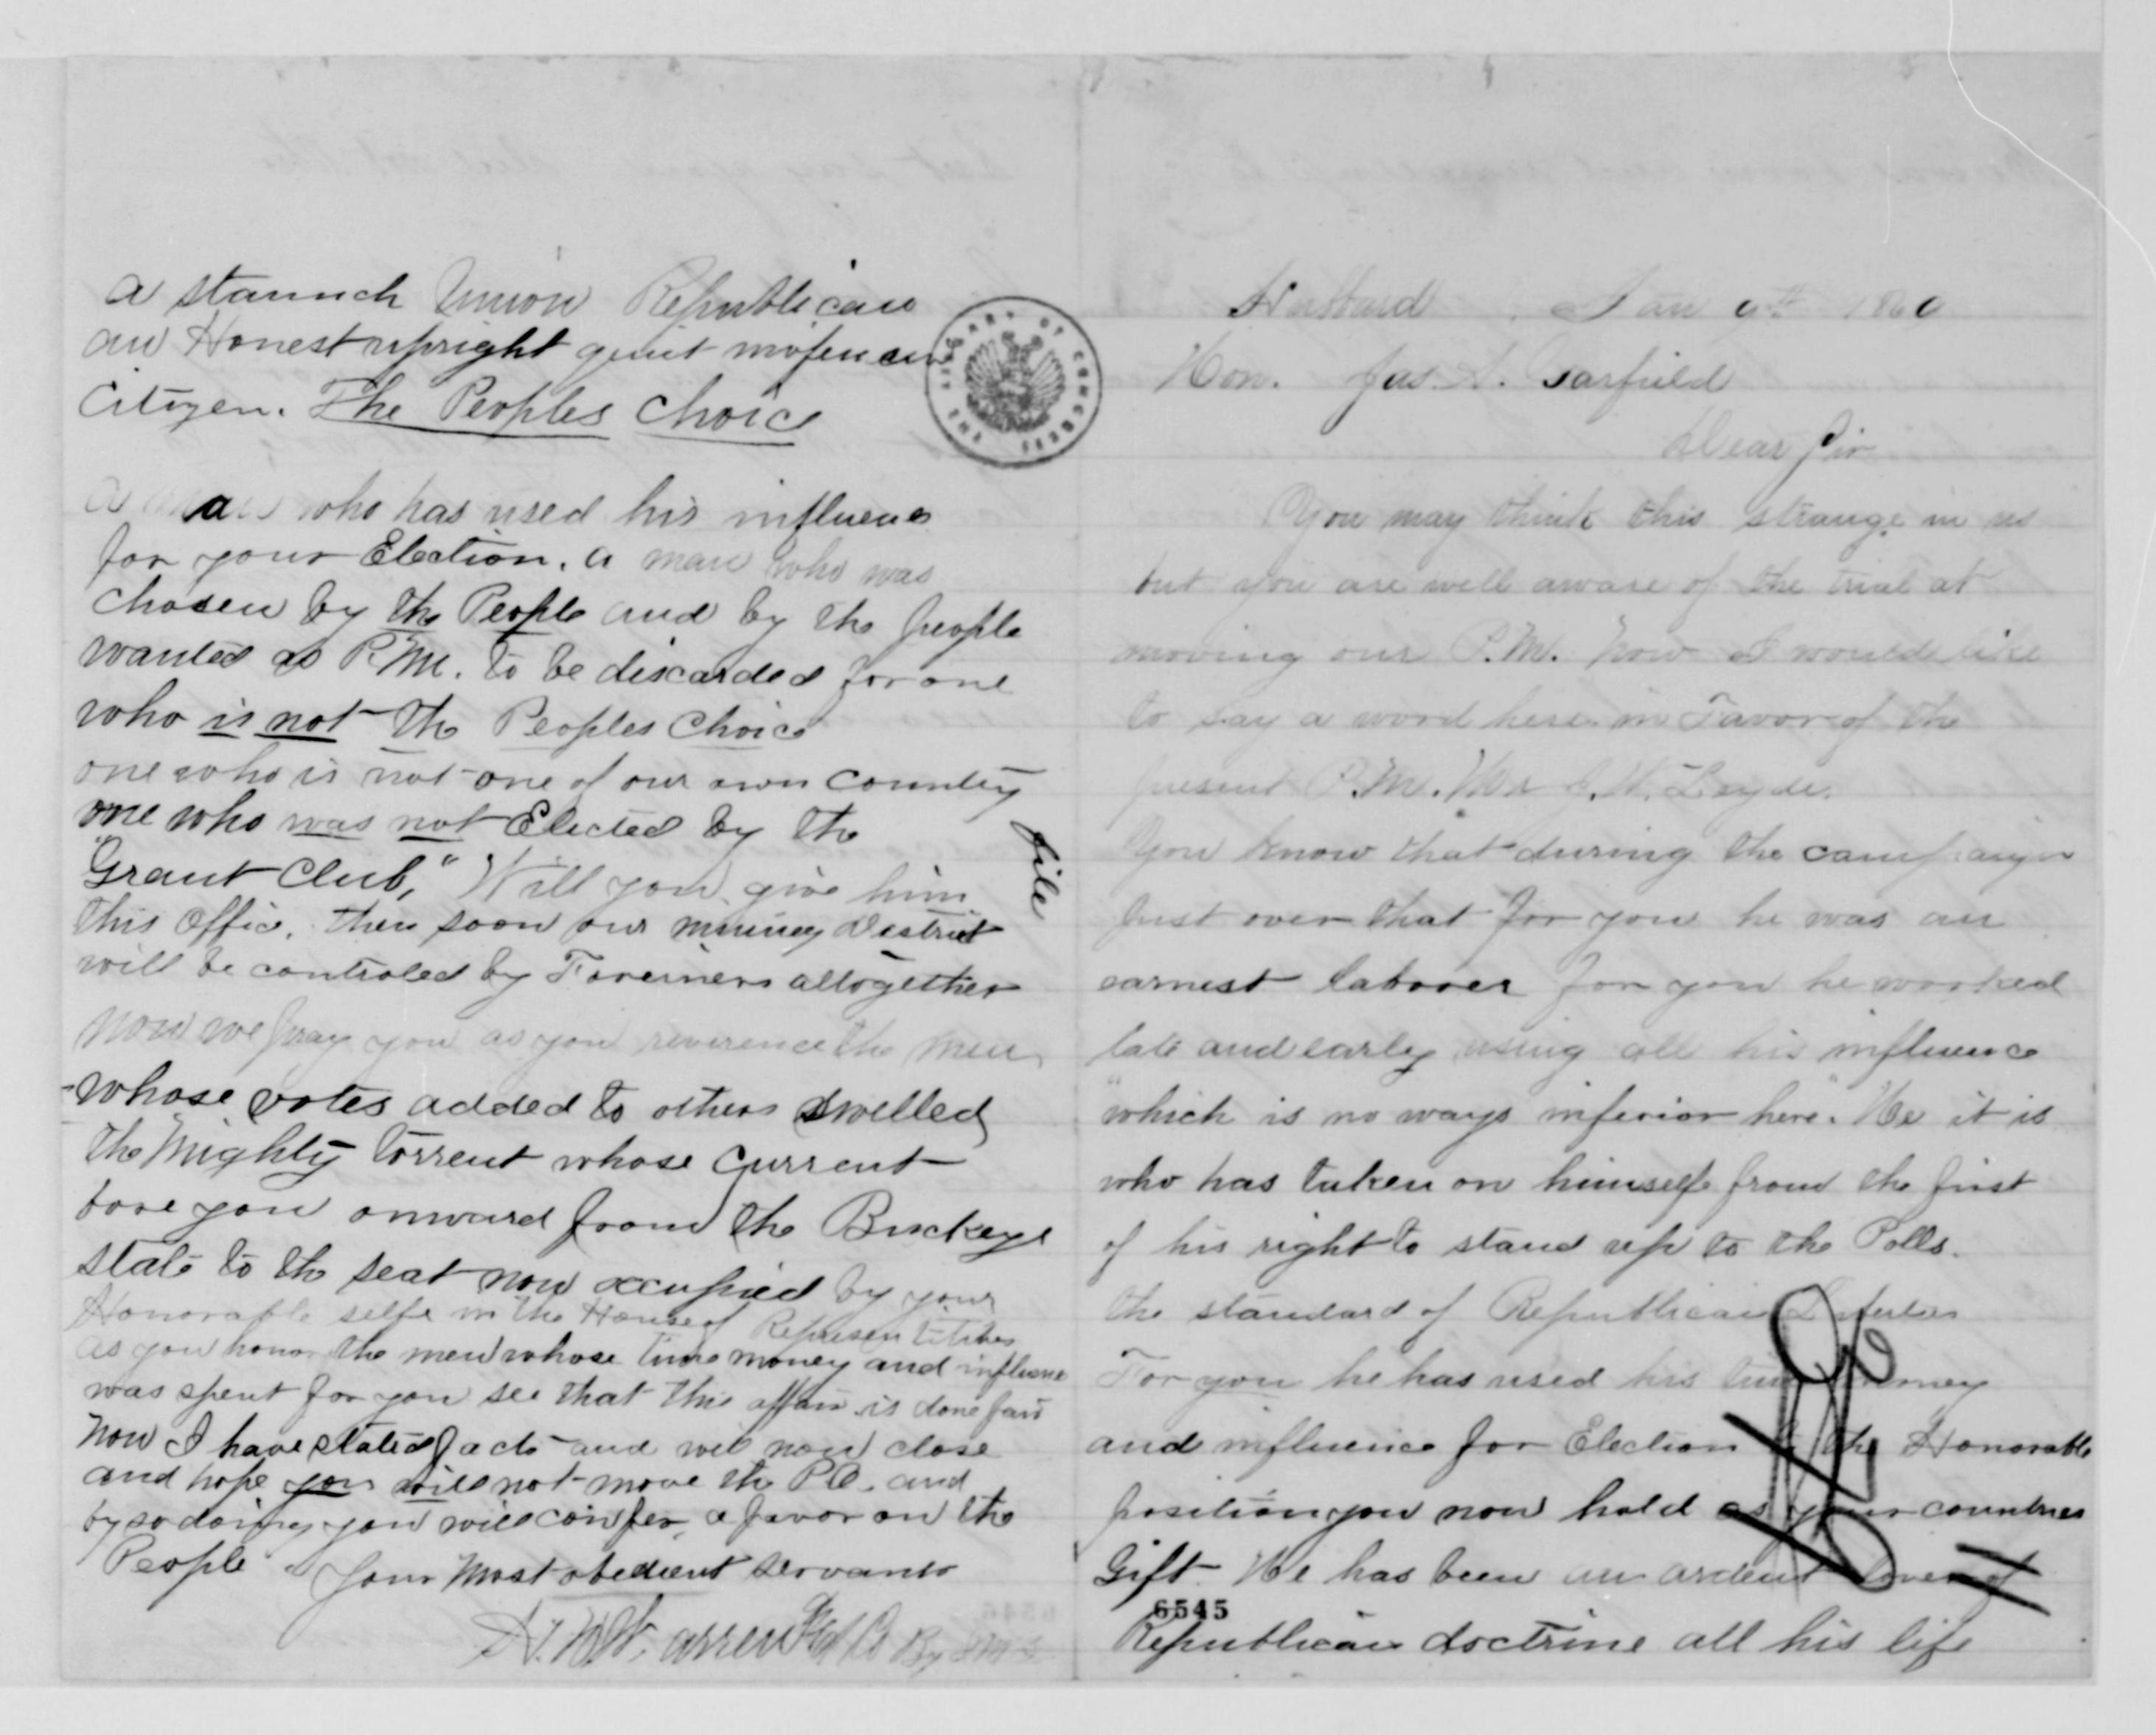 Hubbard Jan 9th 1860
Hon. Jas. A. Garfield
Dear Sir
You may think this strange in us
but you are well aware of the trial at
moving our P.M. now I would like
to say a word here in Favor of the
present P.M. Mr J. W. Leyde.
You know that during the campaign
just over that for you he was an
earnest laborer for you he worked
late and early using all his influence
"which is no ways inferior here." He it is
who has taken on himself from the first
of his right to stand up to the Polls.
the standard of Republican
For you he has used his time money
and influence for Election to the Honorable
position you now hold as your countries
Gift. He has been an ardent lover of
6545
Republican doctrine all his life
a staunch Union Republican
an Honest upright quiet inofencive
Citizen. The Peoples Choice
a man who has used his influence
for your Election. a man who was
chosen by the People and by the people
wanted as P.M. to be discarded for one
who is not the Peoples Choice
one who is not one of our own country
one who was not Elected by the
"Grant Club," Will you give him
this Office. then soon our mining district
will be controled by Foreiners altogether
now we pray you as you reverence the men
whose votes added to others swelled
the Mighty torrent whose current
bore you onward from the Buckeye
state to the seat now occupied by your
Honorable self in the House of Representitives
as you honor the men whose time money and influence
was spent for you see that this affair is done fair
now I have stated facts and will now close
and hope you will not move the P.O. and
by so doing you will confer a favor on the
People Your Most obedient servants
N. W. Warren & Co By
file
THE LIBRARY OF CONGRESS